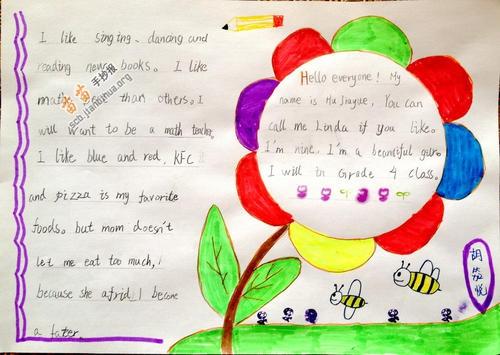 I like singing, dancing and
reading new books. I like
math than others. I
will want to be a math teacher.
I like blue and red, KFC
and pizza is my favorite
foods. but mom doesn't
let me eat too much,
because she afrid I become
a fater.
苗苗手抄报
Hello everyone! My
name is Hu Jiayue, You can
call me Linda if you like.
I'm nine. I'm a beautiful
I will in Grade 4 class.